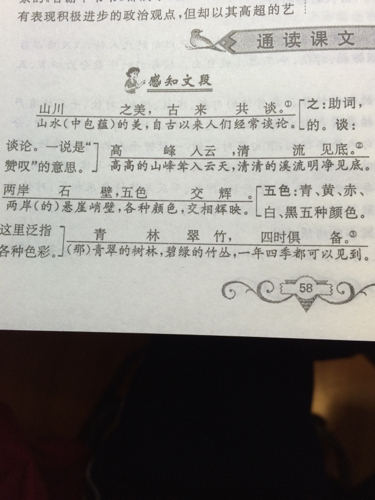 有表现积极进步的政治观点,但却以其高超的艺
通读课文
感知文段
山川 之美,古 来 共 谈。① 之:助词,
山水(中包蕴)的美,自古以来人们经常谈论。 的。谈:
谈论。一说是“ 高 峰 入云 ,清 流 见底。②
赞叹”的意思。 高高的山峰耸入云天,清清的溪流明净见底。
两岸 石 壁,五色 交 辉。 五色:青、黄、赤、
两岸(的)悬崖峭壁,各种颜色,交相辉映。 白、黑五种颜色。
这里泛指 青 林 翠 竹, 四时俱 备。③
各种色彩。 (那)青翠的树林,碧绿的竹丛,一年四季都可以见到。
58